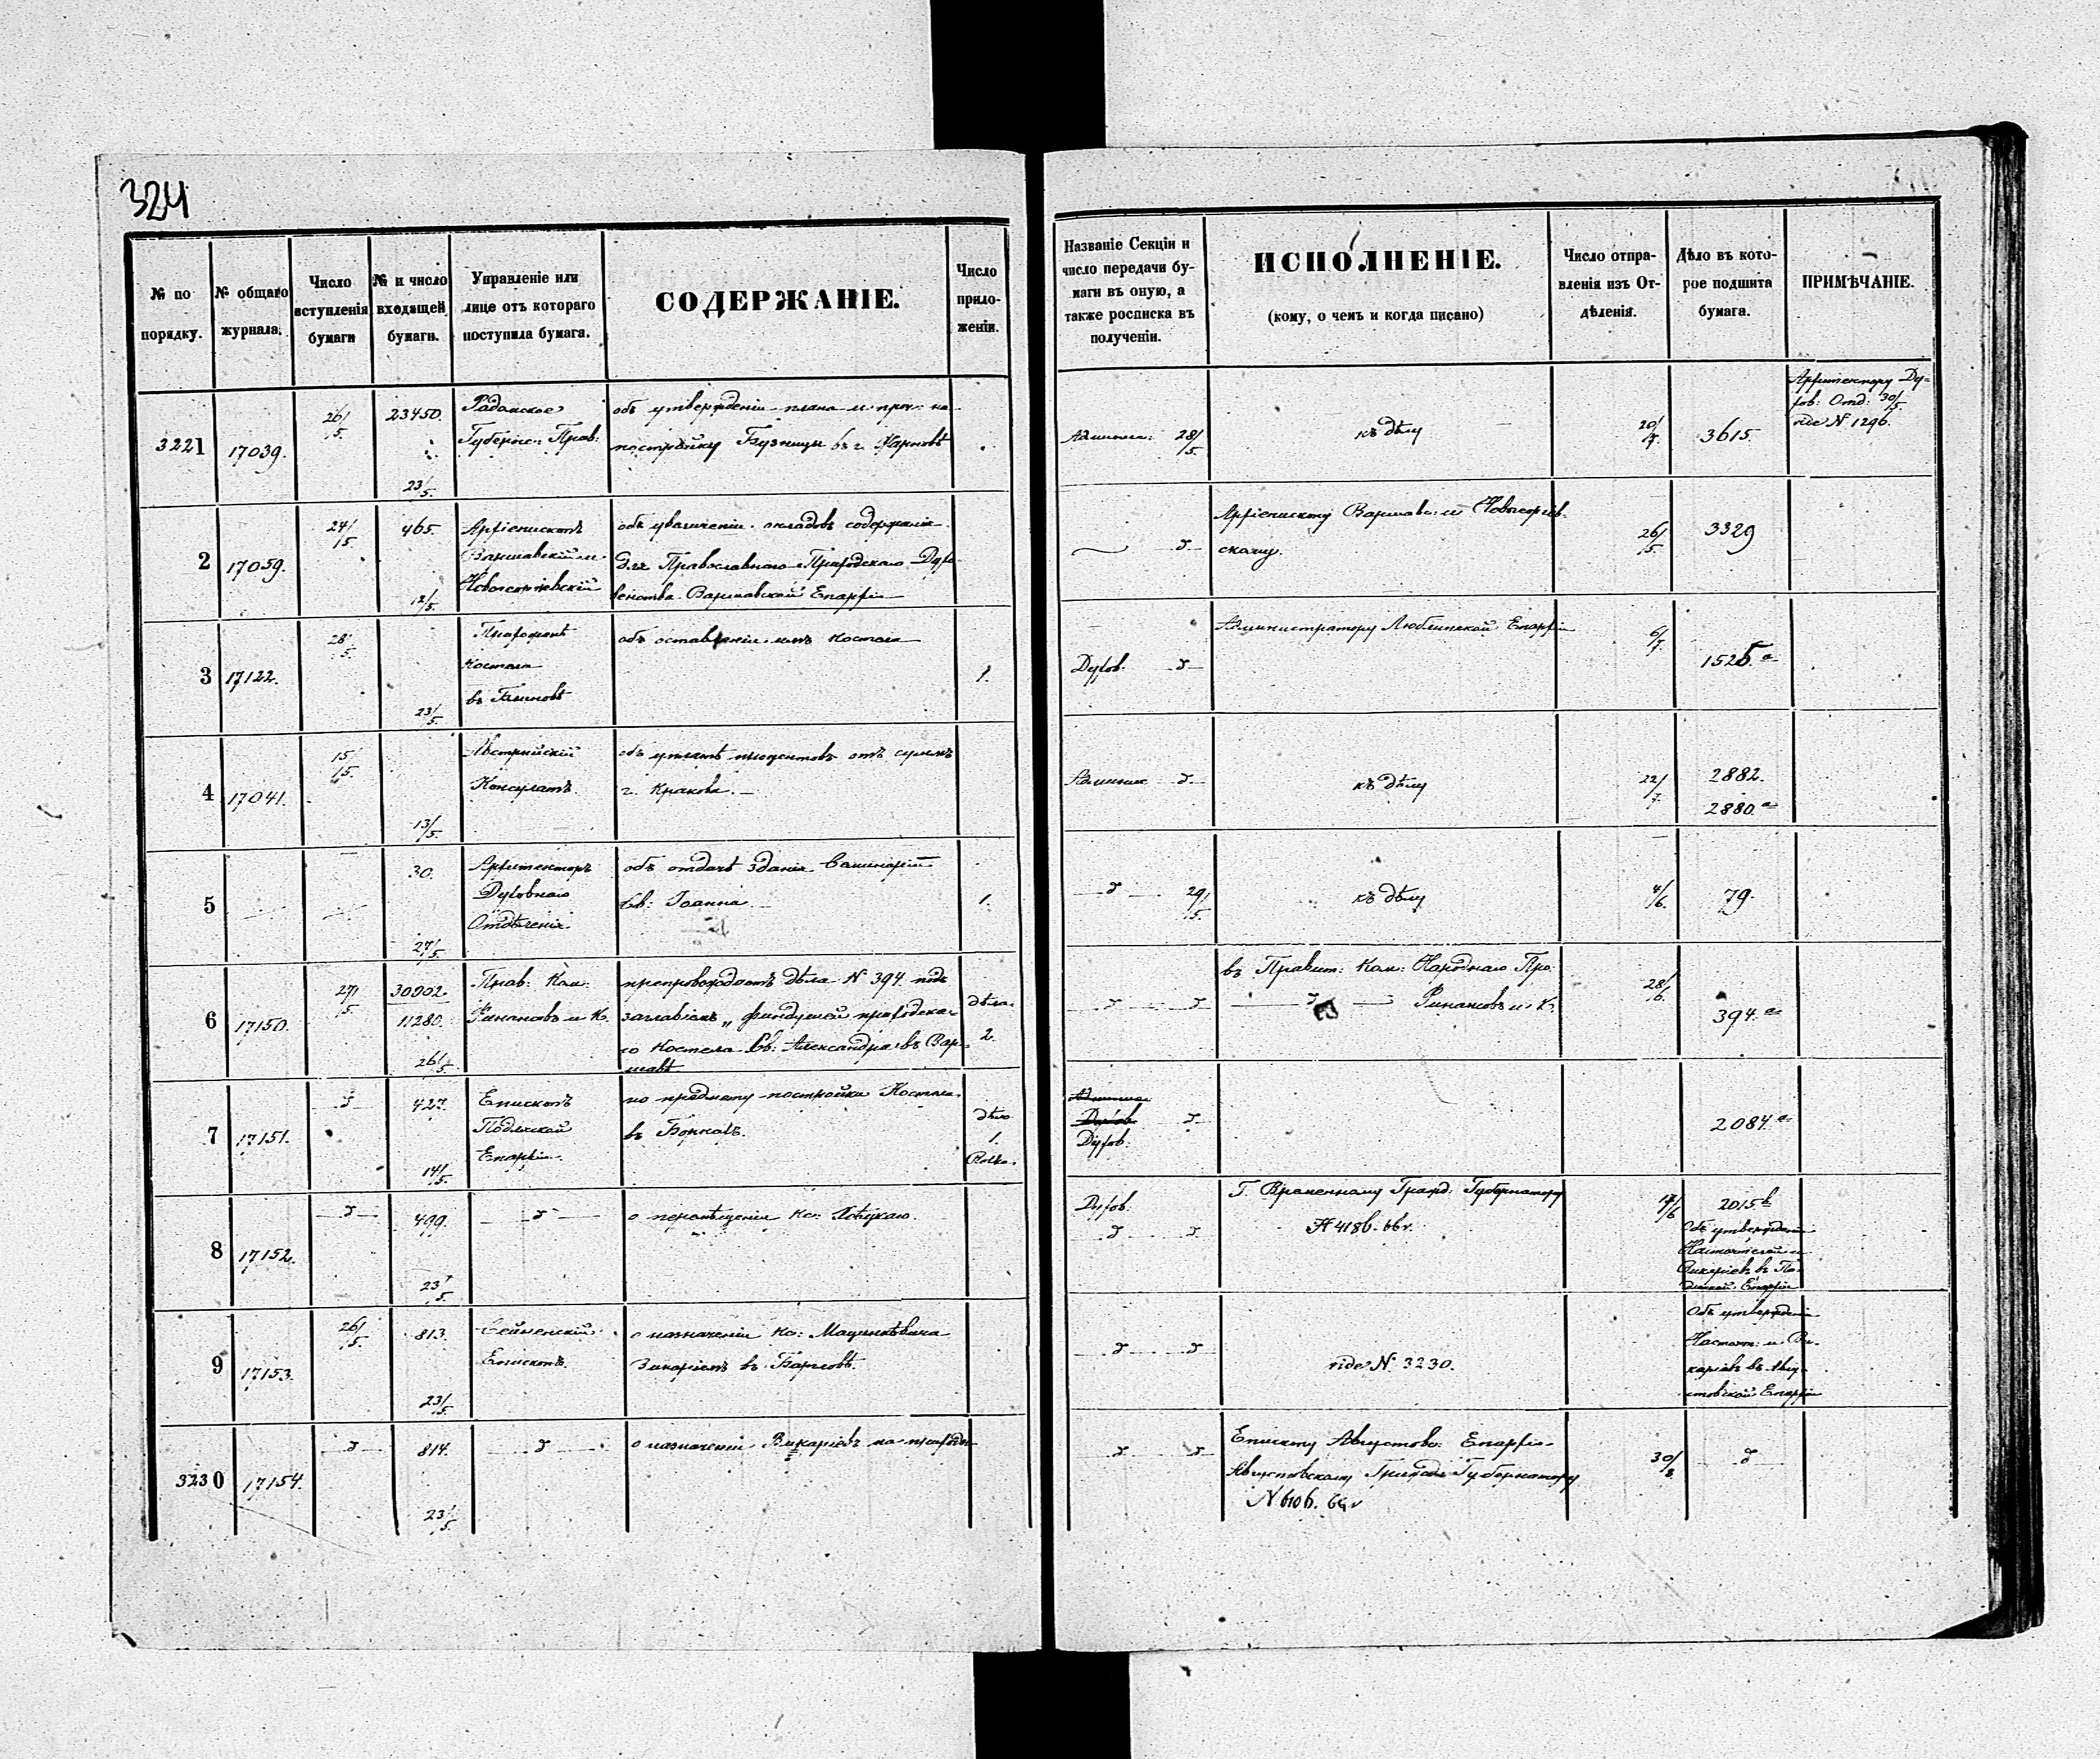 324
№ по порядку.
№ общаго журнала.
Число вступленія бумаги
№ и число входящей бумаги.
Управленіе или лице отъ котораго поступила бумага.
СОДЕРЖАНІЕ.
Число приложеній.
Названіе Секціи и число передачи бумаги въ оную, а также росписка въ полученіи.
ИСПОЛНЕНІЕ.
(кому, о чемъ и когда писано)
Число отправленія изъ Отдѣленія.
Дѣло въ которое подшита бумага.
ПРИМѢЧАНІЕ.
3221
17039.
26/5.
23450.
23/5.
Радомское
Губернс: Прав:
объ утвержденіи плана и проч: на
постройку въ г.
28/5.
къ дѣлу
20/7.
3615.
Архитектору Ду-
хов: Отд: 30/5.
vide N 1296.
2
17059.
24/5.
465.
12/5.
Архіепископъ
Варшавскій и
Новогеоргіевскій
объ увеличеніи окладовъ содержанія
для Православнаго Приходскаго Духо-
венства Варшавской Епархіи
Архіепископу Варшавс: и Новогеоргіев-
скому.
26/5.
3329
3
17122.
28/5.
23/5.
Прихожане
Костела
въ
объ оставленіи имъ Костела
1.
Духов.
Администратору Люблинской Епархіи
6/7.
1525 a
4
17041.
15/5.
13/5.
Австрійскій
Консулатъ.
объ уплатѣ процентовъ отъ суммъ
г. Кракова.
къ дѣлу
22/7.
2882.
2880 a
5
30.
27/5.
Архитекторъ
Духовнаго
Отдѣленія.
объ отдачѣ зданія Семинаріи
Св: Іоанна.
1.
29/5.
къ дѣлу
4/6.
79.
6
17150.
27/5.
30902.
11280.
26/5.
Прав: Ком:
Финансовъ и К.
препровождаетъ дѣла N 394 подъ
заглавіемъ „ приходска-
го Костела Св: Александра въ Вар-
шавѣ
дѣла.
2.
въ Правит: Ком: Народнаго Про.
Финансовъ и К.
28/6.
394. a
7
17151.
427.
14/5.
Епископъ
Подляской
Епархіи.
по предмету постройки Костела
въ
дѣло
1.
Духов.
2084. a
8
17152.
499.
23/5.
о перемѣщеніи Кс:
Духов.
Г. Временному Гражд: Губернатору
17/6
2015 b
Объ утвержденіи
Настоятелей и
Викаріевъ въ По-
дляской Епархіи
9
17153.
26/5.
813.
23/5.
Сейненскій
Епископъ.
о назначеніи Кс:
Викаріемъ въ
vide N 3230.
Объ утвержденіи
Настоят: и Ви-
каріевъ въ Авгу-
стовской Епархіи
3230
17154.
814.
23/5.
о назначеніи Викаріевъ на приходы
Епископу Августовс: Епархіи
Августовскому Гражд: Губернатору
30/8